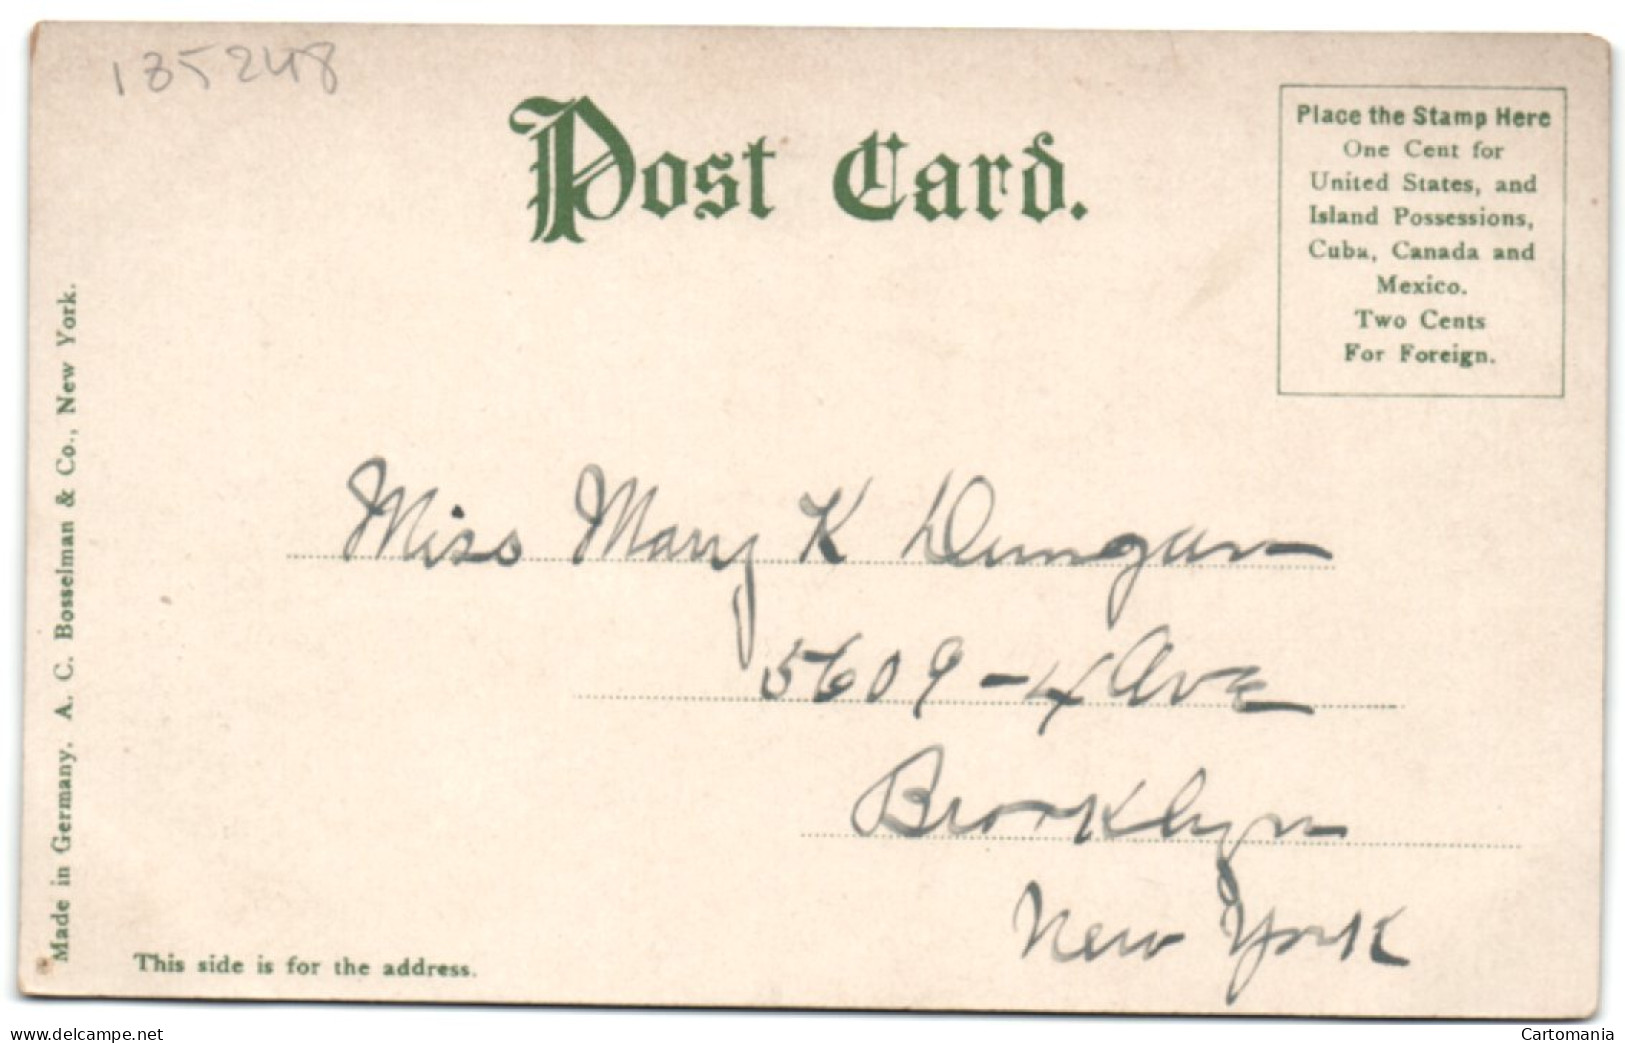 135248
Post Card.
Place the Stamp Here
One Cent for
United States, and
Island Possessions,
Cuba, Canada and
Mexico.
Two Cents
For Foreign.
Miss Mary K Dungan
5609-4 Ave
Brooklyn
New York
Made in Germany. A. C. Bosselman & Co., New York.
This side is for the address.
www.delcampe.net
Cartomania